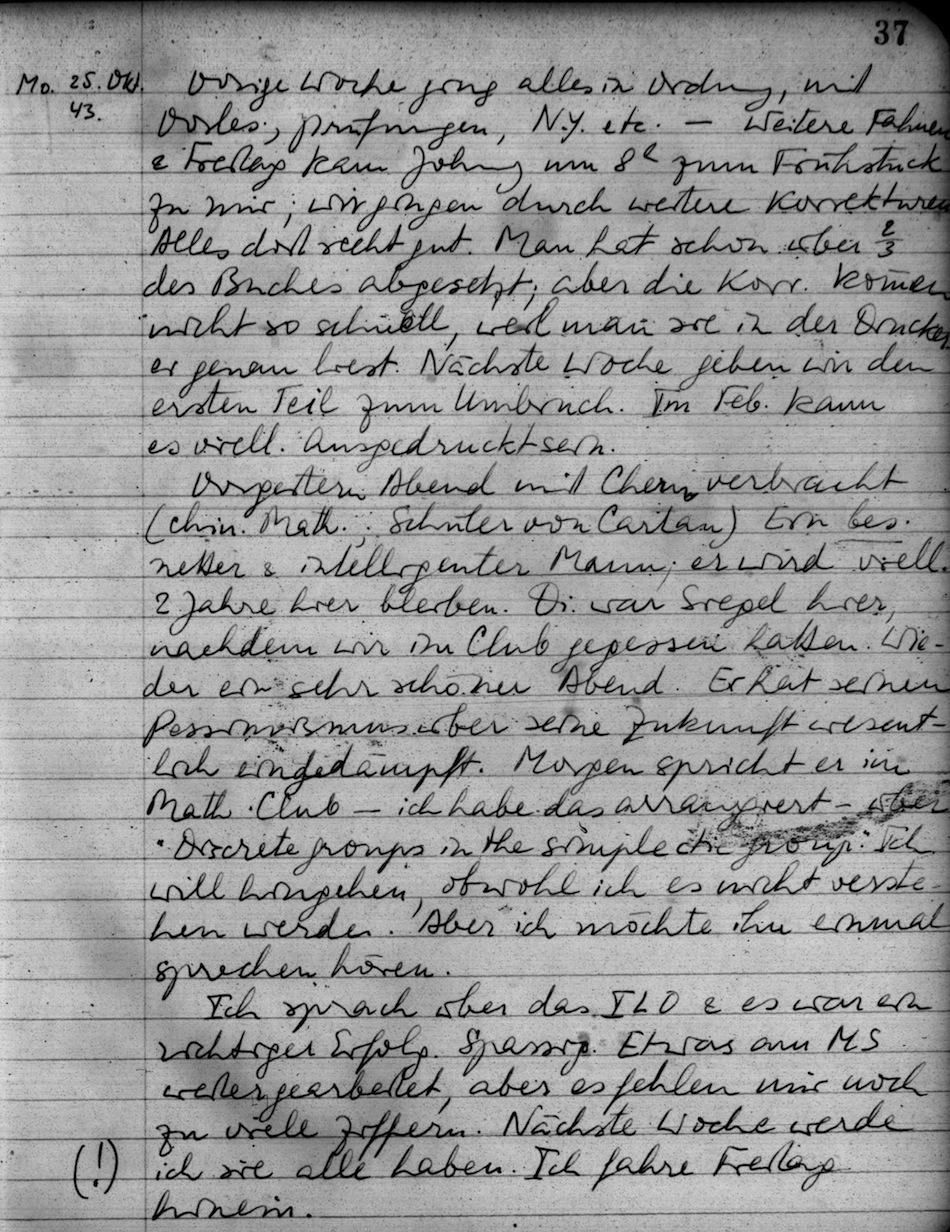 37
Mo. 25. Okt. Vorige Woche ging alles in Ordnung, mit
43. Vorles., Prüfungen, N.Y. etc. — Weitere Fahnen
& Freitag kam Johnny um 8h zum Frühstück
zu mir; wir gingen durch weitere Korrekturen
Alles dort recht gut. Man hat schon über 2/3
des Buches abgesetzt; aber die Korr. kom̄en
nicht so schnell, weil man sie in der Drucker
ei genau liest. Nächste Woche geben wir den
ersten Teil zum Umbruch. Im Feb. kann
es viell. ausgedruckt sein.
Vorgestern Abend mit Chern verbracht
(chin. Math., Schüler von Cartan) Ein bes.
netter & intelligenter Mann; er wird viell.
2 Jahre hier bleiben. Di. war Siegel hier,
nachdem wir im Club gegessen hatten. Wie-
der ein sehr schöner Abend. Er hat seinen
Pessimismus über seine Zukunft wesent-
lich eingedämpft. Morgen spricht er im
Math. Club — ich habe das arrangiert — über
"Discrete groups in the simplectic group". Ich
will hingehen, obwohl ich es nicht verste-
hen werde. Aber ich möchte ihn einmal
sprechen hören.
Ich sprach über das ILO & es war ein
richtiger Erfolg. Spassig. Etwas am MS
weitergearbeitet, aber es fehlen mir noch
zu viele Ziffern. Nächste Woche werde
(!) ich sie alle haben. Ich fahre Freitag
hinein.